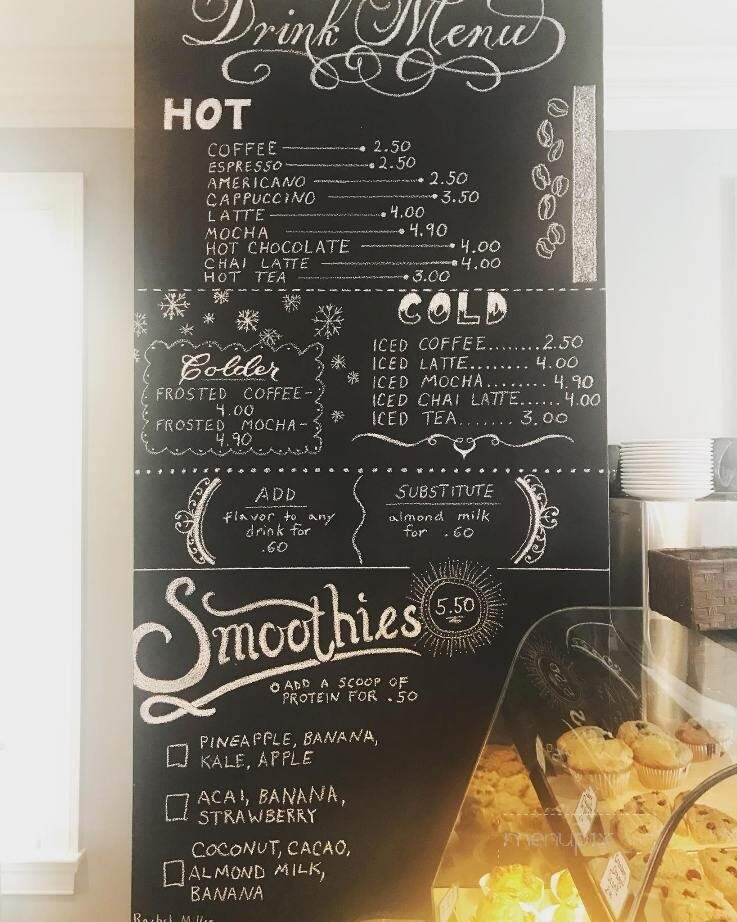 Drink Menu
HOT
COFFEE 2.50
ESPRESSO 2.50
AMERICANO 2.50
CAPPUCCINO 3.50
LATTE 4.00
MOCHA 4.90
HOT CHOCOLATE 4.00
CHAI LATTE 4.00
HOT TEA 3.00
COLD
ICED COFFEE........2.50
ICED LATTE........ 4.00
ICED MOCHA......... 4.90
ICED CHAI LATTE......4.00
ICED TEA....... 3.00
Colder
FROSTED COFFEE-
4.00
FROSTED MOCHA-
4.90
ADD
flavor to any
drink for
.60
SUBSTITUTE
almond milk
for .60
Smoothies
5.50
ADD A SCOOP OF
PROTEIN FOR .50
PINEAPPLE, BANANA,
KALE, APPLE
ACAI, BANANA,
STRAWBERRY
COCONUT, CACAO,
ALMOND MILK,
BANANA
Rachel
menupix